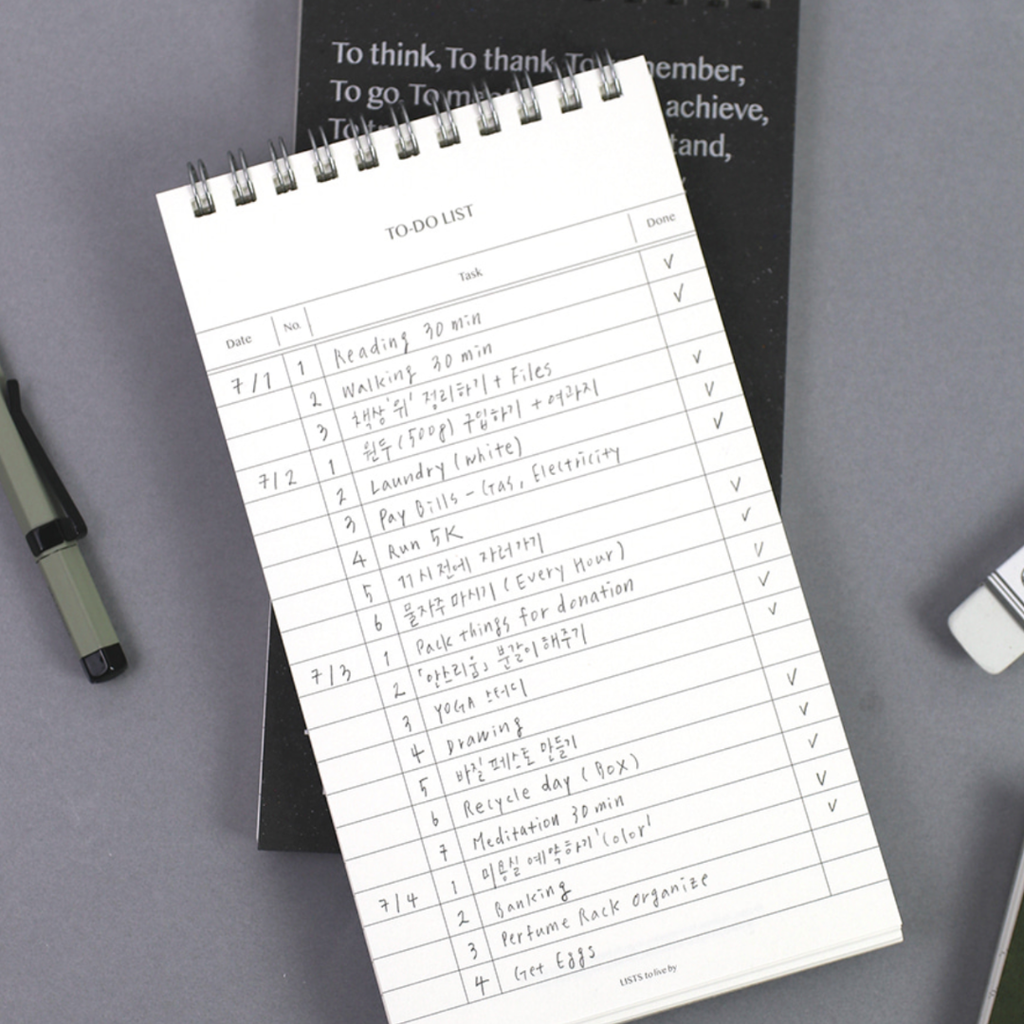 To think, To thank, To
To go, To
achieve,
To
TO-DO LIST
Date No. Task Done
7/1 1 Reading 30 min ✓
2 Walking 30 min ✓
3 책상 '위' 정리하기 + Files
7/2 1 원두 (500g) 구입하기 + 여과지 ✓
2 Laundry (white) ✓
3 Pay Bills - Gas, Electricity ✓
4 Run 5K
5 11시 전에 자러가기 ✓
6 물 자주 마시기 (Every Hour) ✓
7/3 1 Pack things for donation ✓
2 「안스리움」 분갈이 해주기 ✓
3 YOGA 스터디 ✓
4 Drawing
5 바질 페스토 만들기 ✓
6 Recycle day (BOX) ✓
7 Meditation 30 min ✓
7/4 1 미용실 예약하기 'Color' ✓
2 Banking ✓
3 Perfume Rack Organize
4 Get Eggs
LISTS to live by